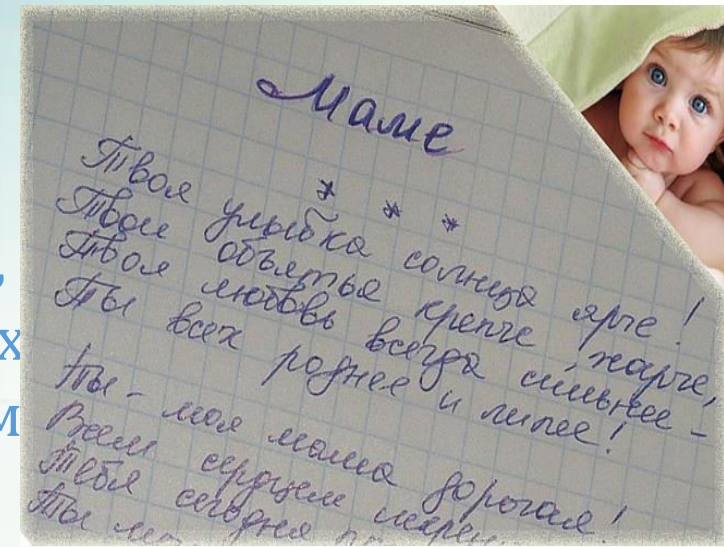 Маме
* * *
Твоя улыбка солнца ярче!
Твои объятья крепче, жарче,
Твоя любовь всегда сильнее -
Ты всех роднее и милее!
Ты - моя мама дорогая!
Всем сердцем
Тебя сегодня
Ты
,
х
м